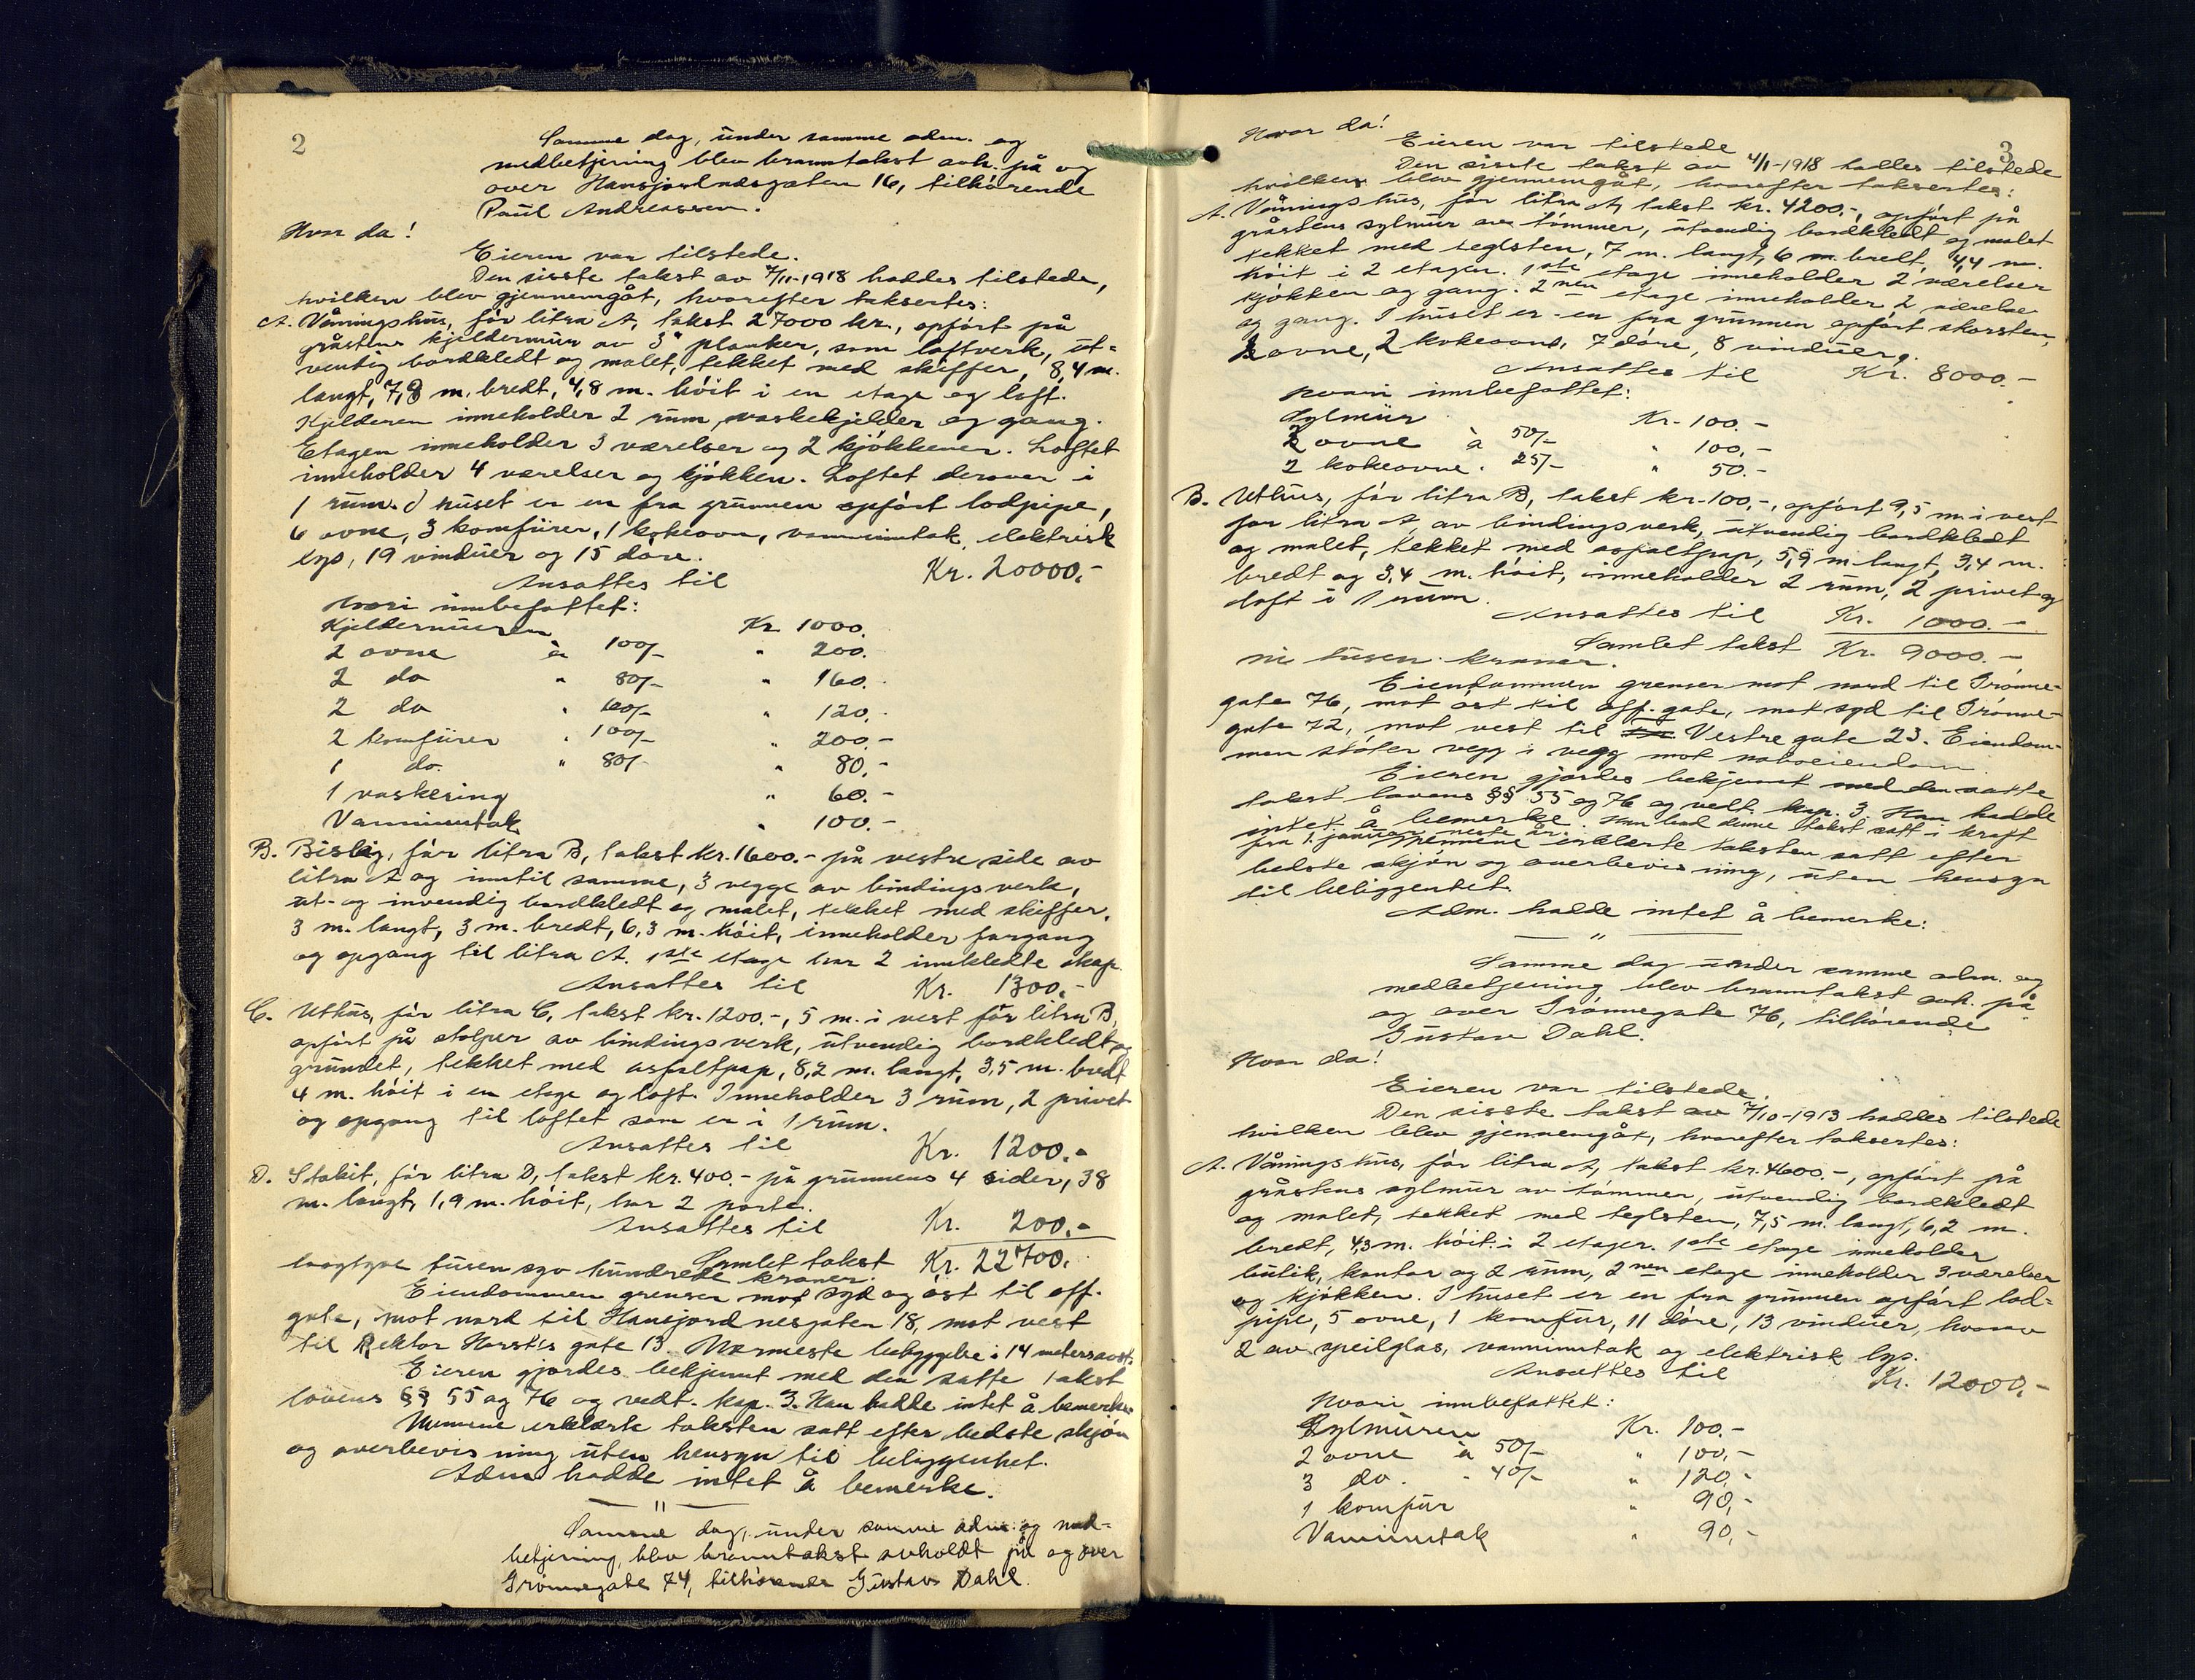 2
Samme dag, under samme adm. og
medbetjening blev branntakst avh. på og
over Hansjordnesgaten 16, tilhørende
Paul Andreassen.
Hvor da!
Eieren var tilstede.
Den sisste takst av 7/11-1918 haddes tilstede,
hvilken blev gjennemgåt, hvorefter taksertes:
A. Våningshus, før litra A, takst 27000 kr., opført på
gråstens kjeldermur av 3" planker, som loftverk, ut-
vendig bordkledt og malet, tekket med skiffer, 8,4 m.
langt, 7,9 m. bredt, 4,8 m. høit i en etage og loft.
Kjelderen inneholder 2 rum, vaskekjelder og gang.
Etagen inneholder 3 værelser og 2 kjøkkener. Loftet
inneholder 4 værelser og kjøkken. Loftet derover i
1 rum. I huset er en fra grunnen opført lodpipe,
6 ovne, 3 komfürer, 1 kokeovn, vanninntak, elektrisk
lys, 19 vinduer og 15 døre.
Ansattes til Kr. 20000.-
Hvori innbefattet:
Kjeldermuren Kr. 1000.
2 ovne à 100/- " 200.
2 do " 80/- " 160.-
2 do " 60/- " 120.-
2 komfürer " 100/- " 200.-
1 do. " 80/- " 80.-
1 vaskering " 60.-
Vanninntak " 100.-
B. Bislag, før litra B, takst kr. 1600.- på vestre side av
litra A og inntil samme, 3 vegge av bindingsverk,
ut- og invendig bordkledt og malet, tekket med skiffer,
3 m. langt, 3 m. bredt, 6,3 m. høit, inneholder forgang
og opgang til litra A. 1ste etage har 2 innkledte skap.
Ansattes til Kr. 1300.-
C. Uthus, før litra C, takst kr. 1200.-, 5 m. i vest for litra B,
opført på stolper av bindingsverk, utvendig bordkledt og
grundet, tekket med asfaltpap, 8,2 m. langt, 3,5 m. bredt
4 m. høit i en etage og loft. Inneholder 3 rum, 2 privet
og opgang til loftet som er i 1 rum.
Ansattes til Kr. 1200.-
D. Stakit, før litra D, takst kr. 400.- på grunnens 4 sider, 38
m. langt, 1,9 m. høit, har 2 porte.
Ansattes til Kr. 200.-
Samlet takst Kr. 22700.-
toogtyve tusen syv hundrede kroner.
Eiendommen grenser mot syd og øst til off.
gate, mot nord til Hansjordnesgaten 18, mot vest
til Rektor Horsts gate 13. Nærmeste bebyggelse i 14 meters avst.
Eieren gjordes bekjennt med den satte takst
lovens §§ 55 og 76 og vedt. kap. 3. Han hadde intet å bemerke.
Mennene erklærte taksten satt efter bedste skjøn
og overbevisning uten hensyn til beliggenhet.
Adm. hadde intet å bemerke.
— " —
Samme dag, under samme adm. og med-
betjening, blev branntakst avholdt på og over
Grønnegate 74, tilhørende Gustav Dahl.
3
Hvor da!
Eieren var tilstede
Den sisste takst av 4/1-1918 haddes tilstede
hvilken blev gjennemgåt, hvorefter taksertes:
A. Våningshus, før litra A, takst kr. 4200.-, opført på
gråstens sylmur av tømmer, utvendig bordkledt og malet
tekket med teglsten, 7 m. langt, 6 m. bredt, 4,4 m.
høit i 2 etager. 1ste etage inneholder 2 værelser
kjøkken og gang. 2nen etage inneholder 2 værelse
og gang. I huset er en fra grunnen opført skorsten,
2 ovne, 2 kokeovne, 7 døre, 8 vinduer.
Ansattes til Kr. 8000.-
Hvori innbefattet:
Sylmur Kr. 100.-
2 ovne à 50/- " 100.-
2 kokeovne " 25/- " 50.-
B. Uthus, før litra B, takst kr. 100.-, opført 9,5 m. i vest
for litra A, av bindingsverk, utvendig bordkledt
og malet, tekket med asfaltpap, 5,9 m. langt, 3,4 m.
bredt og 3,4 m. høit, inneholder 2 rum, 2 privet og
loft i 1 rum.
Ansattes til Kr. 1000.-
Samlet takst Kr. 9000.-
ni tusen kroner.
Eiendommen grenser mot nord til Grønne-
gate 76, mot øst til off. gate, mot syd til Grønne-
gate 72, mot vest til Vestre gate 23. Eiendom-
men støter vegg i vegg mot naboeiendom.
Eieren gjordes bekjennt med den satte
takst lovens §§ 55 og 76 og vedt. kap. 3. Han hadde
intet å bemerke. Han bad denne takst satt i kraft
fra 1. januar neste år.
Mennene erklærte taksten satt efter
bedste skjøn og overbevisning, uten hensyn
til beliggenhet.
Adm. hadde intet å bemerke:
— " —
Samme dag under samme adm. og
medbetjening blev branntakst avh. på
og over Grønnegate 76, tilhørende
Gustav Dahl.
Hvor da!
Eieren var tilstede.
Den sisste takst av 7/10-1913 haddes tilstede
hvilken blev gjennemgåt, hvorefter taksertes:
A. Våningshus, før litra A, takst kr. 4600.-, opført på
gråstens sylmur av tømmer, utvendig bordkledt
og malet, tekket med teglsten, 7,5 m. langt, 6,2 m.
bredt, 4,3 m. høit i 2 etager. 1ste etage inneholder
butik, kontor og 2 rum, 2nen etage inneholder 3 værelser
og kjøkken. I huset er en fra grunnen opført lod-
pipe, 5 ovne, 1 komfur, 11 døre, 13 vinduer, hvorav
2 av speilglas, vanninntak og elektrisk lys.
Ansattes til Kr. 12000.-
Hvori innbefattet:
Sylmuren Kr. 100.-
2 ovne à 50/- " 100.-
3 do. " 40/- " 120.-
1 komfur " 90.-
Vanninntak " 90.-